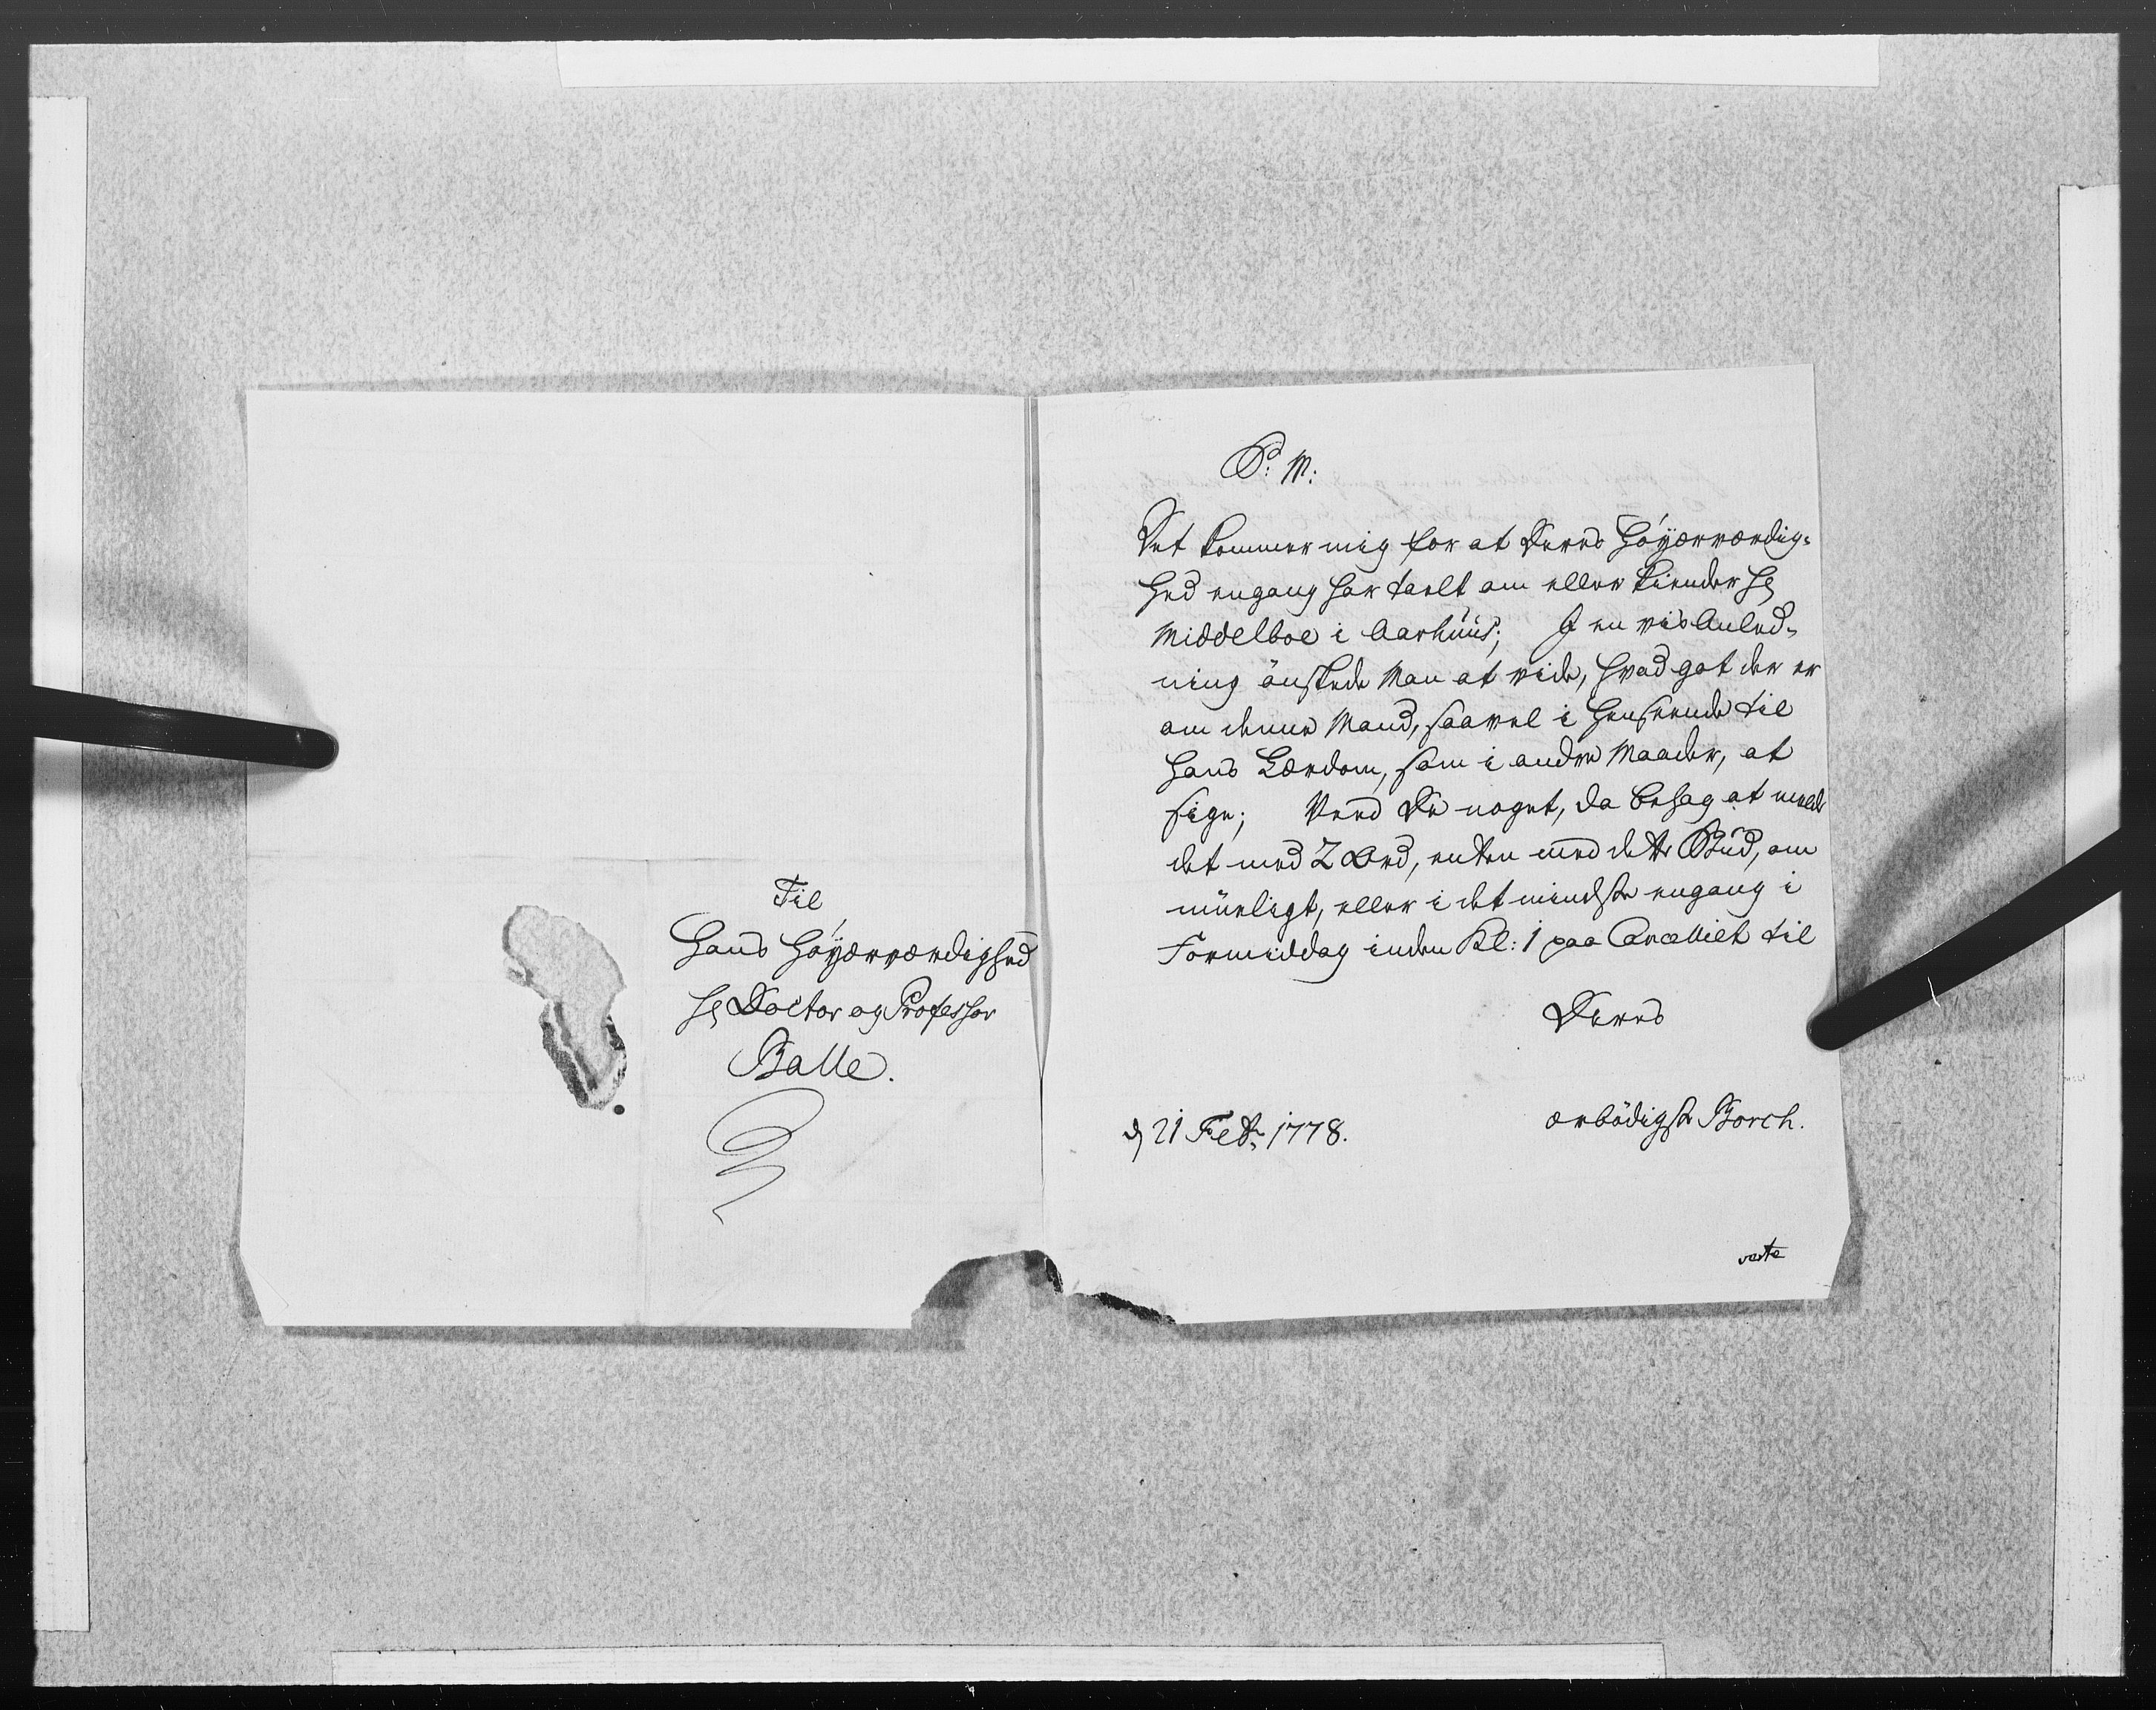 Til
Hans Höÿærværdighed
Hr Doctor og Professor
Balle.
P: M:
Det kommer mig for at Deres Höÿærværdig-
hed engang har talt om eller kiender Hr
Middelboe i Aarhuus; I en vis Anled-
ning önskede Man at vide, hvad got der er
om denne Mand, saavel i Henseende til
hans Lærdom, som i andre Maader, at
sige; Veed De noget, da behag at melde
det med 2 Ord, enten med dette Bud, om
mueligt, eller i det mindste engang i
Formiddag inden Kl: 1 paa Cancelliet til
Deres
ærbödigste Borch.
d 21 Febr: 1778.
verte